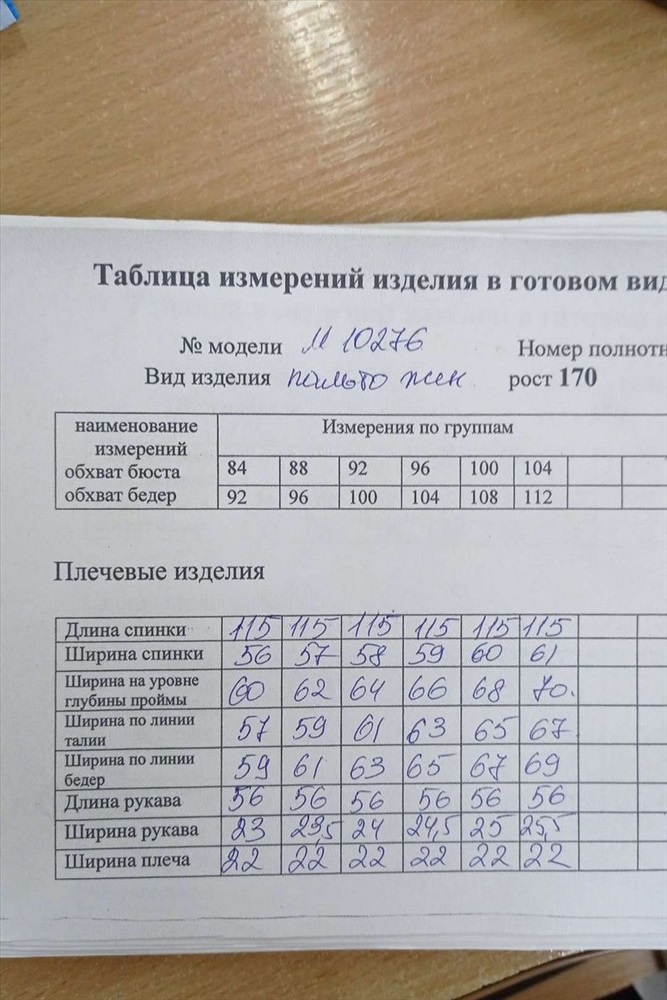 Таблица измерений изделия в готовом вид
№ модели М 10276 Номер полнотн
Вид изделия пальто жен. рост 170
наименование измерений Измерения по группам
обхват бюста 84 88 92 96 100 104
обхват бедер 92 96 100 104 108 112
Плечевые изделия
Длина спинки 115 115 115 115 115 115
Ширина спинки 56 57 58 59 60 61
Ширина на уровне глубины проймы 60 62 64 66 68 70.
Ширина по линии талии 57 59 61 63 65 67
Ширина по линии бедер 59 61 63 65 67 69
Длина рукава 56 56 56 56 56 56
Ширина рукава 23 23,5 24 24,5 25 25,5
Ширина плеча 22 22 22 22 22 22